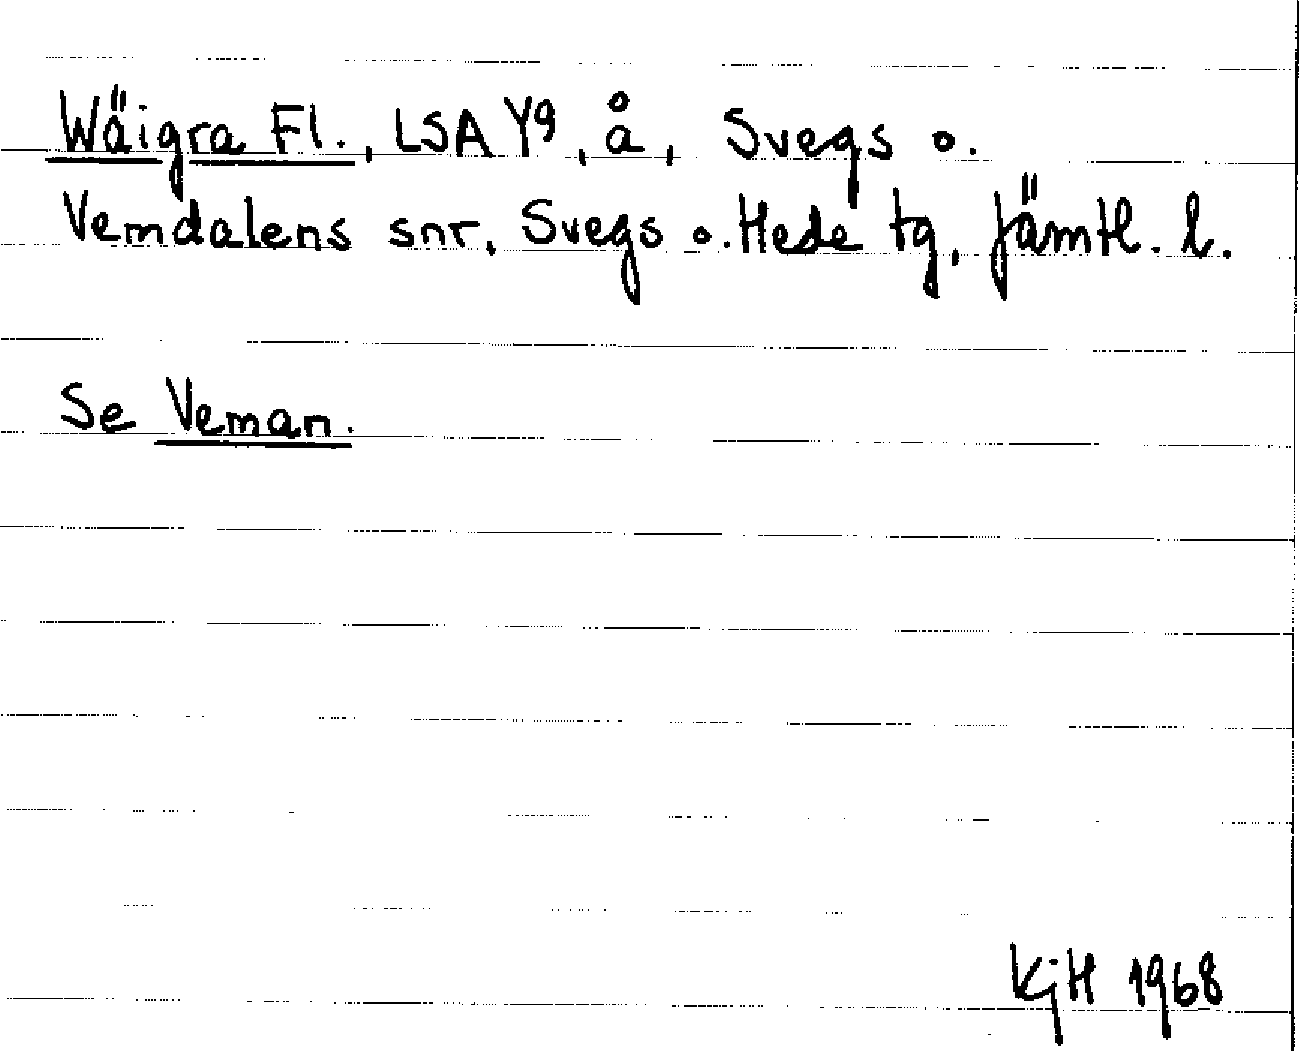 Wäigra Fl., LSA Y9, å, Svegs o.
Vemdalens snr, Svegs o. Hede tg, Jämtl. l.
Se Veman.
KjH 1968